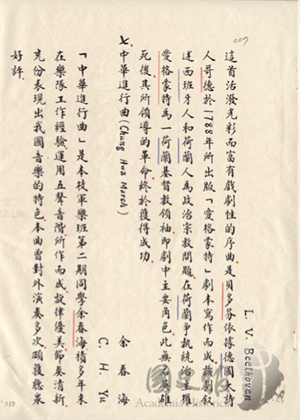 007
L. V. Beethoven
這首活潑光彩而富有戲劇性的序曲是貝多芬依據德國大詩
人哥德於1788年所出版「愛格蒙特」劇本寫作而成描劇敍
述西班牙人和荷蘭人為政治宗教問題在荷蘭爭執統治主權
愛格蒙特為一荷蘭基督教領袖即劇中主要角色此無名英雄
死後其所領導的革命終於獲得成功
七、中華進行曲(Chung Hwa March)
余春海
C. H. Yu
「中華進行曲」是本校軍樂班第二期同學余春海積多年來
在樂隊工作經驗運用五聲音階所作而成旋律優美節奏清新
充份表現出我國音樂的特色本曲曾對外演奏多次頗獲聽衆
好評